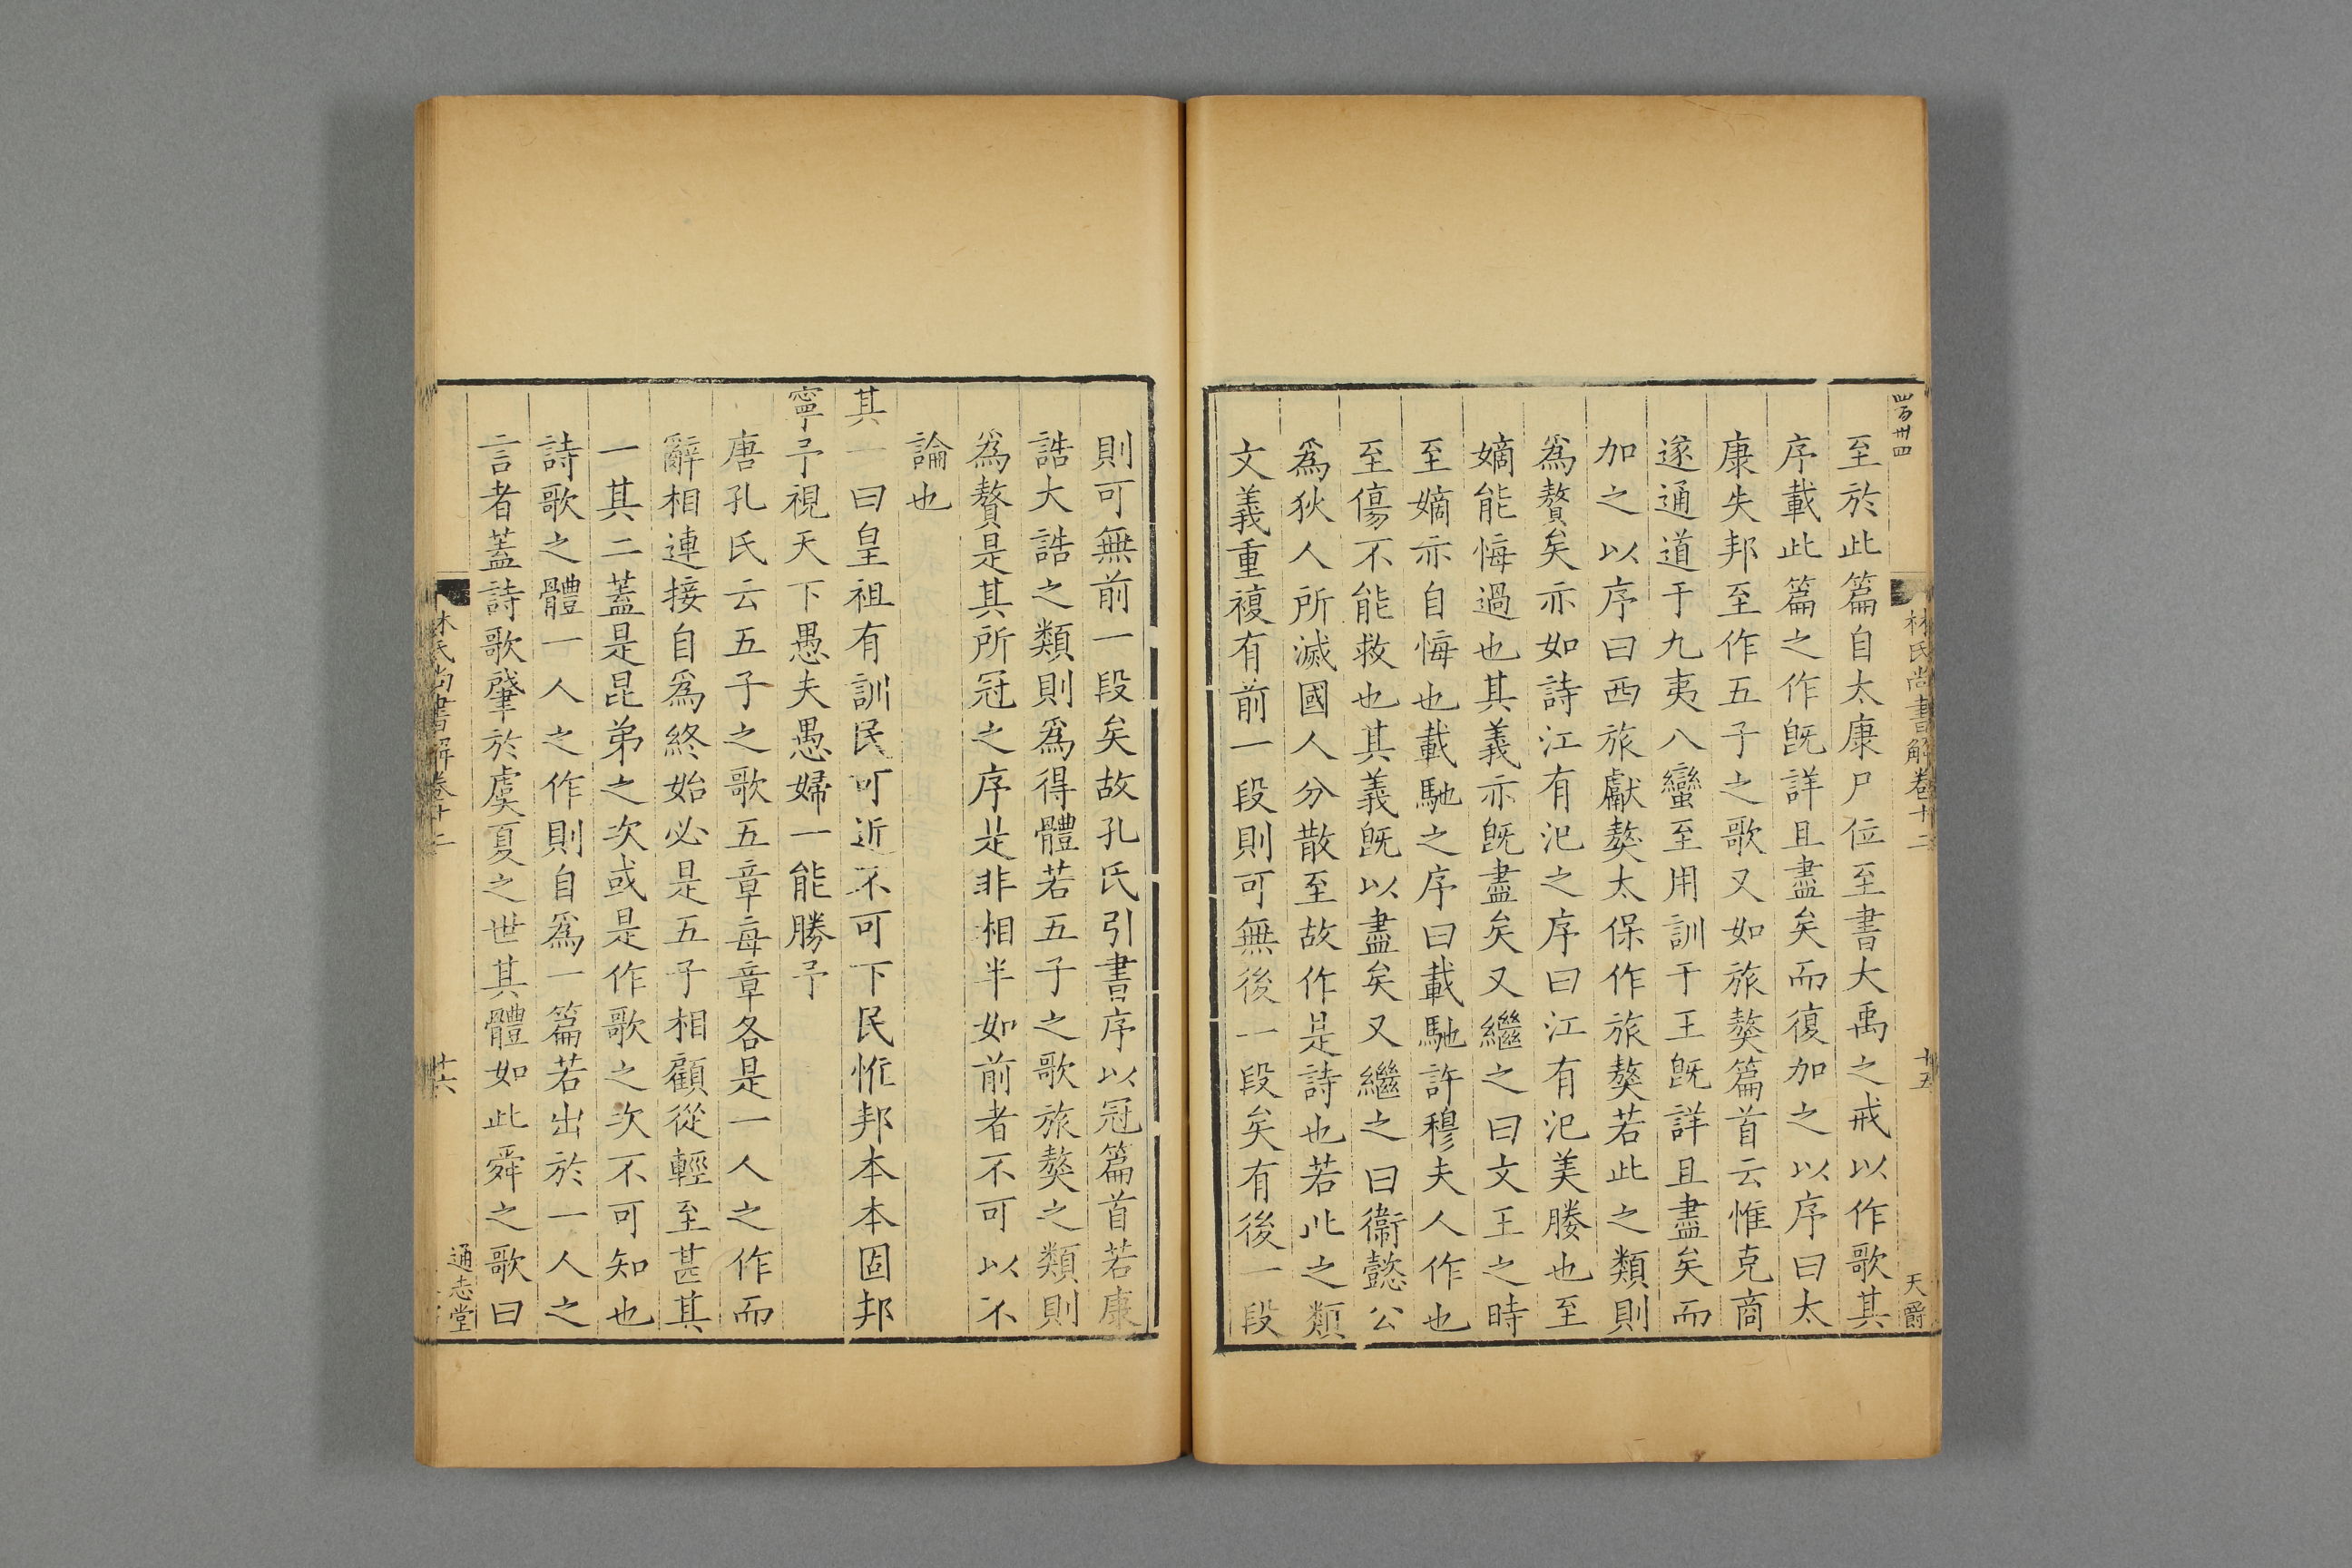 四百卅四
林氏尚書解卷十二
十五
天爵
至於此篇自太康尸位至書大禹之戒以作歌其
序載此篇之作旣詳且盡矣而復加之以序曰太
康失邦至作五子之歌又如旅獒篇首云惟克商
遂通道于九夷八蠻至用訓于王旣詳且盡矣而
加之以序曰西旅獻獒太保作旅獒若此之類則
爲贅矣亦如詩江有汜之序曰江有汜美媵也至
嫡能悔過也其義亦旣盡矣又繼之曰文王之時
至嫡亦自悔也載馳之序曰載馳許穆夫人作也
至傷不能救也其義旣以盡矣又繼之曰衞懿公
爲狄人所滅國人分散至故作是詩也若此之類
文義重複有前一段則可無後一段矣有後一段
則可無前一段矣故孔氏引書序以冠篇首若康
誥大誥之類則爲得體若五子之歌旅獒之類則
爲贅是其所冠之序是非相半如前者不可以不
論也
其一曰皇祖有訓民可近不可下民惟邦本本固邦
寧予視天下愚夫愚婦一能勝予
唐孔氏云五子之歌五章每章各是一人之作而
辭相連接自爲終始必是五子相顧從輕至甚其
一其二蓋是昆弟之次或是作歌之次不可知也
詩歌之體一人之作則自爲一篇若出於一人之
言者蓋詩歌肇於虞夏之世其體如此舜之歌曰
林氏尚書解卷十二
廿六
通志堂